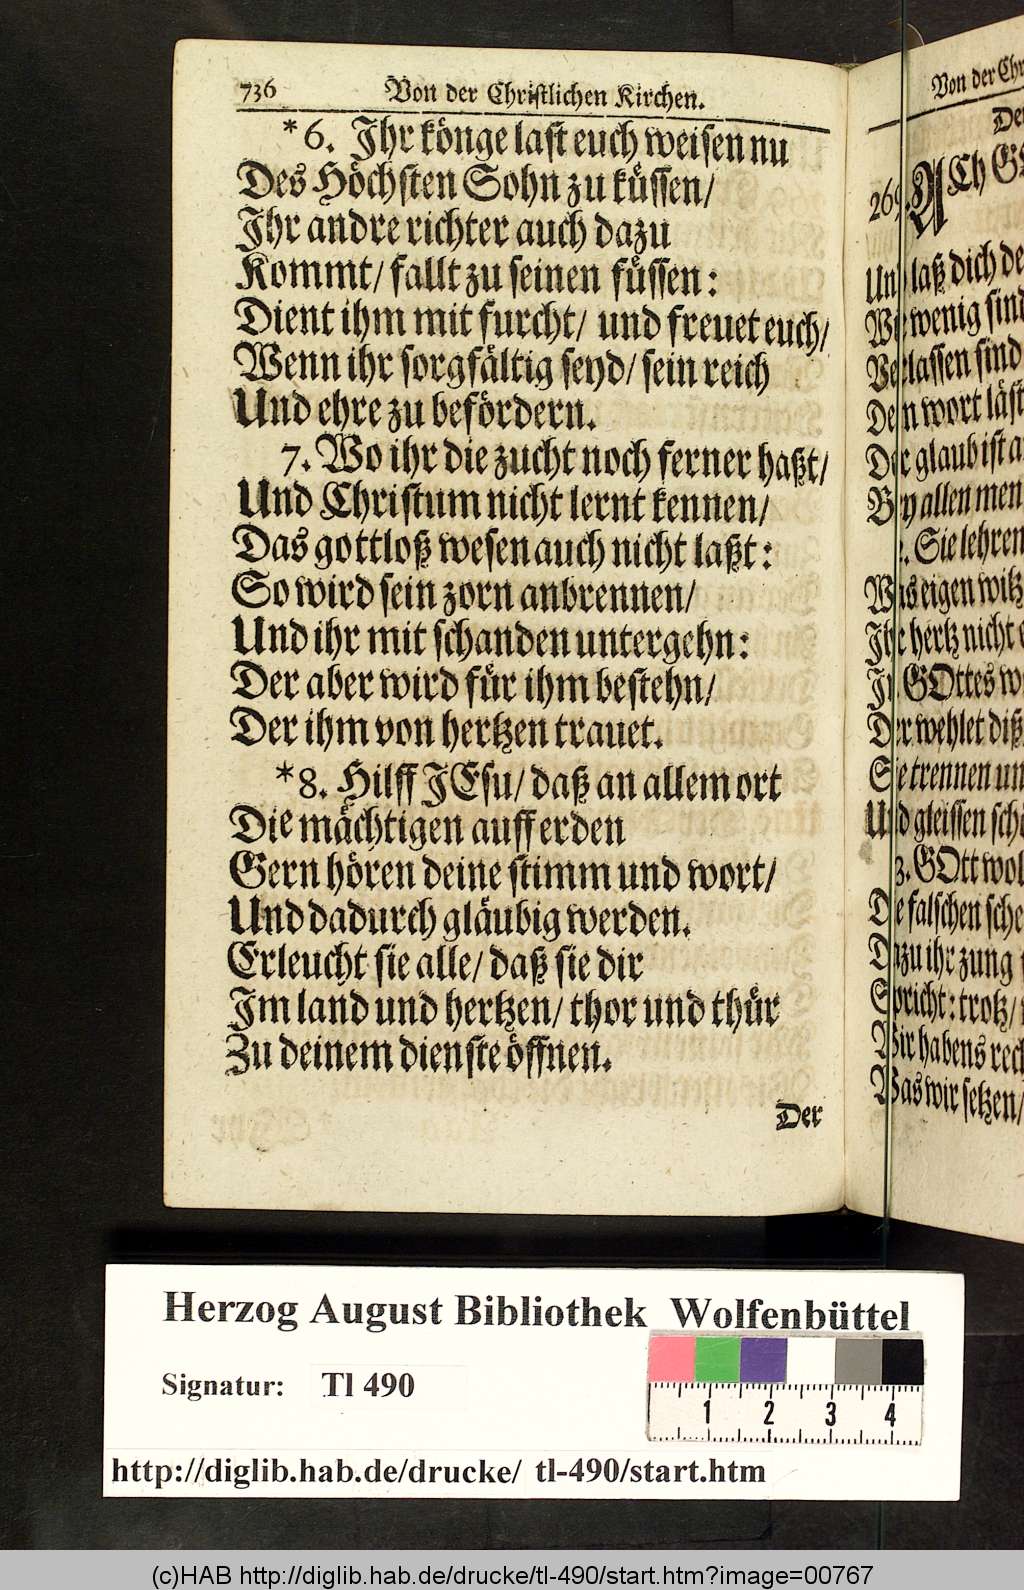 736 Von der Christlichen Kirchen.
*6. Ihr könge last euch weisen nu
Des Höchsten Sohn zu küssen/
Ihr andre richter auch dazu
Kommt/ fallt zu seinen füssen:
Dient ihm mit furcht/ und freuet euch/
Wenn ihr sorgfältig seyd/ sein reich
Und ehre zu befördern.
7. Wo ihr die zucht noch ferner haßt/
Und Christum nicht lernt kennen/
Das gottloß wesen auch nicht laßt:
So wird sein zorn anbrennen/
Und ihr mit schanden untergehn:
Der aber wird für ihm bestehn/
Der ihm von hertzen trauet.
*8. Hilff JEsu/ daß an allem ort
Die mächtigen auff erden
Gern hören deine stimm und wort/
Und dadurch gläubig werden.
Erleucht sie alle/ daß sie dir
Im land und hertzen/ thor und thür
Zu deinem dienste öffnen.
Der
Von der
ACh
laß dich
wenig sind
Verlassen sind
Dein wort
Der glaub ist
Bey allen
Sie lehren
Was eigen witz
Ihr hertz nicht
In GOttes
Der wehlet diß
Sie trennen
Und gleissen
3. GOtt
Die falschen
Dazu ihr zung
Spricht: trotz/
Wir habens
Was wir setzen/
Herzog August Bibliothek Wolfenbüttel
Signatur: Tl 490
1 2 3 4
http://diglib.hab.de/drucke/ tl-490/start.htm
(c)HAB http://diglib.hab.de/drucke/tl-490/start.htm?image=00767